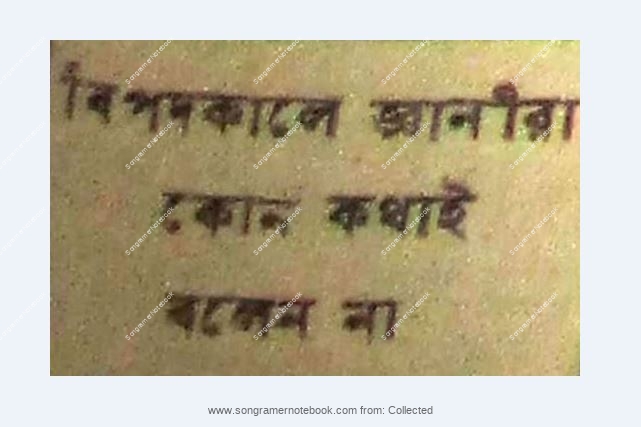 বিপদকালে জ্ঞানীরা
কোন কথাই
বলেন না
www.songramernotebook.com from: Collected